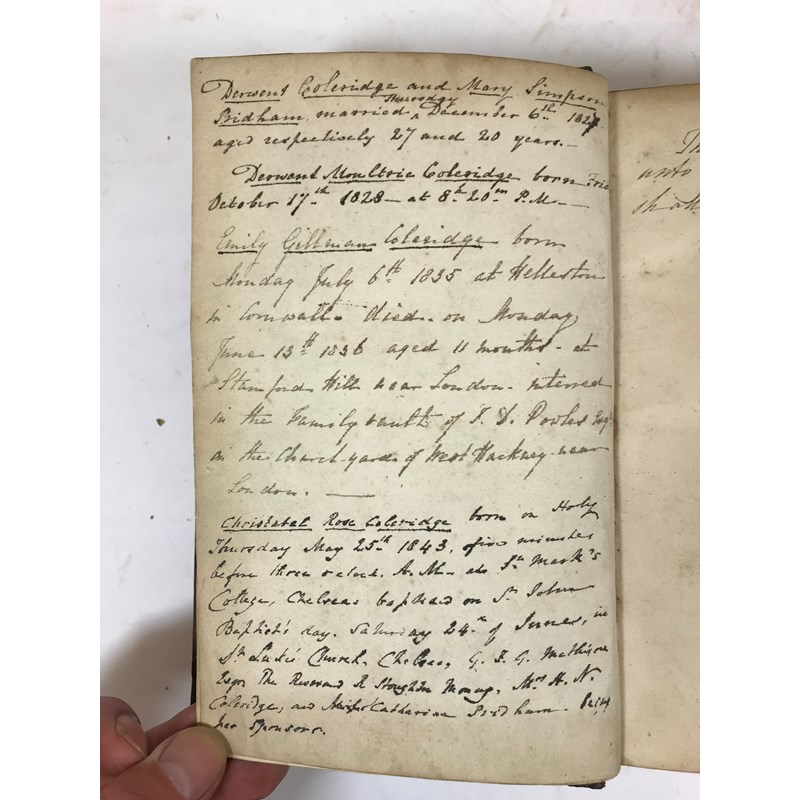 Derwent Coleridge and Mary Simpson
Thursday
Pridham, married ^ December 6th 1827
aged respectively 27 and 20 years.—
Derwent Moultrie Coleridge born Frid
October 17th 1828 — at 8h 20m P.M. —
Emily Gillman Coleridge born
Monday July 6th 1835 at Helleston
in Cornwall. died. on Monday,
June 13th 1836 aged 11 months. at
Stamford Hill near London. interred
in the Family vault of J. D. Powles Esqr
in the Church-yard of West Hackney near
London. —
Christabel Rose Coleridge born on Holy
Thursday May 25th 1843, five minutes
before three o'clock. A.M. at St Mark's
College, Chelsea; baptised on St John
Baptist's day. Saturday 24th of June, in
St Luke's Church, Chelsea, G. F. G. Mathison
Esqr, The Reverend R Stoughton Money, Mrs H. N.
Coleridge, and Catharine Pridham. being
her sponsors.
Th
unto
shall